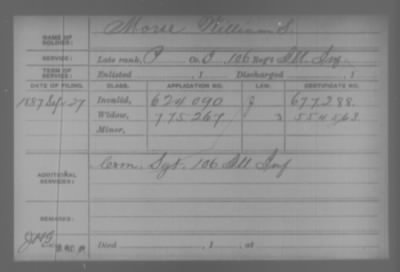 NAME OF SOLDIER: Morse William S.
SERVICE: Late rank, P Co. I, 106 Reg't Ill Inf.
TERM OF SERVICE: Enlisted , 1 Discharged , 1
DATE OF FILING. CLASS. APPLICATION NO. LAW. CERTIFICATE NO.
1887 27 Invalid, 624090 677288.
Widow, 775267 3 554563.
Minor,
ADDITIONAL SERVICES: Com. Sgt. 106 Ill Inf
REMARKS:
Died , 1 , at